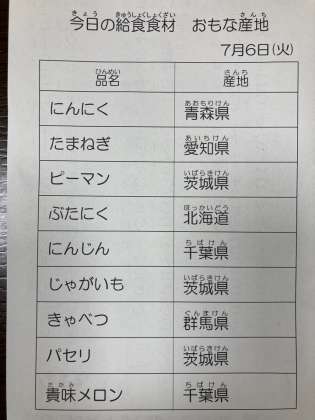 今日の給食食材　おもな産地
7月6日(火)
品名 産地
にんにく 青森県
たまねぎ 愛知県
ピーマン 茨城県
ぶたにく 北海道
にんじん 千葉県
じゃがいも 茨城県
きゃべつ 群馬県
パセリ 茨城県
貴味メロン 千葉県